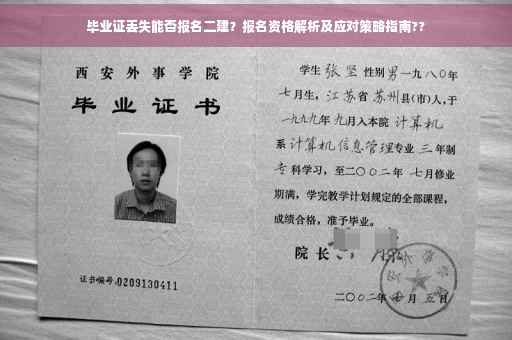 毕业证丢失能否报名二建？报名资格解析及应对策略指南??
西安外事学院
毕业证书
证书编号:0209130411
学生 张坚 性别 男 一九八〇年
七月生，江苏省 苏州 县(市)人，于
一九九九年 九月入本院 计算机
系 计算机信息管理 专业 三 年制
专 科学习，至二〇〇二年 七月修业
期满，学完教学计划规定的全部课程，
成绩合格，准予毕业。
院长
二〇〇二年 七 月 五 日